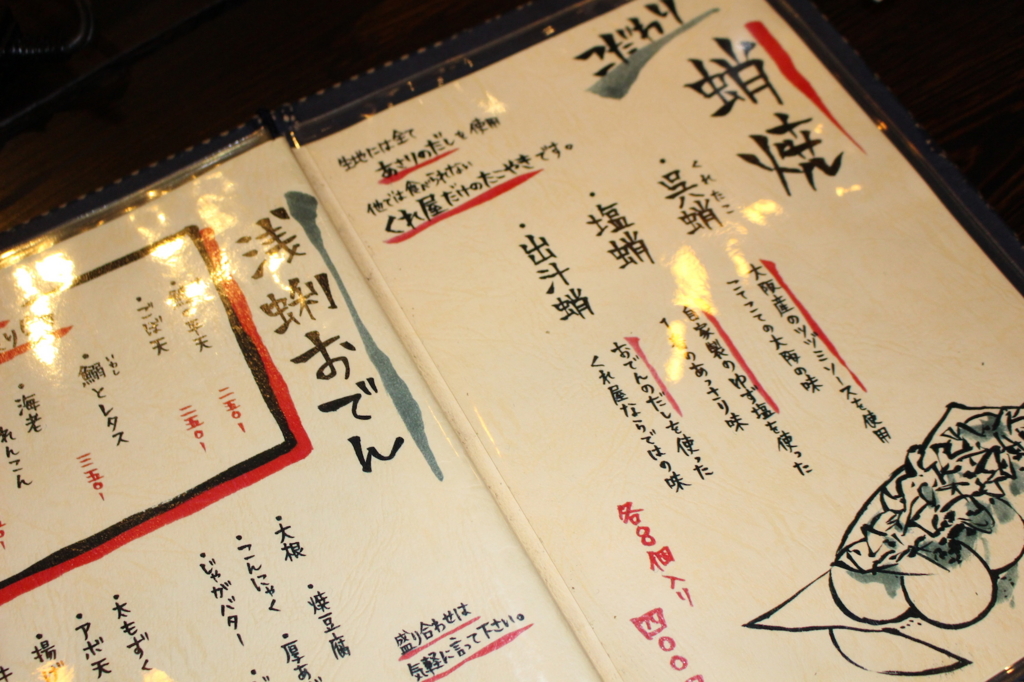 こだわり
蛸焼
生地には全て
あさりのだしを使用
他では食べられない
くれ屋だけのたこやきです。
・呉蛸
くれたこ
大阪産のツヅミソースを使用
こてこての大阪の味
・塩蛸
自家製のゆず塩を使った
のあっさり味
・出汁蛸
おでんのだしを使った
くれ屋ならではの味
各8個入り
四〇〇
浅蜊おでん
平天
二五〇
・ごぼ天
二五〇
・鰯とレタス
いわし
三五〇
・海老
れんこん
・大根
・焼豆腐
・こんにゃく
・厚あ
・じゃがバター
・太もずく
・アボ天
・揚げ
盛り合わせは
気軽に言って下さい。